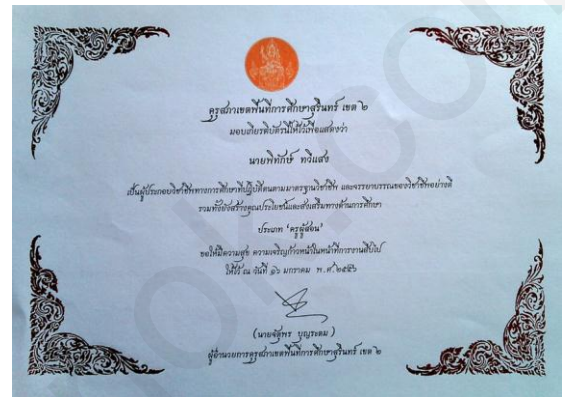 คุรุสภาเขตพื้นที่การศึกษาสุรินทร์ เขต ๒
มอบเกียรติบัตรนี้ให้ไว้เพื่อแสดงว่า
นายพิทักษ์ ทวีแสง
เป็นผู้ประกอบวิชาชีพทางการศึกษาที่ปฏิบัติตนตามมาตรฐานวิชาชีพ และจรรยาบรรณของวิชาชีพอย่างดี
รวมทั้งยังสร้างคุณประโยชน์และส่งเสริมทางด้านการศึกษา
ประเภท 'ครูผู้สอน'
ขอให้มีความสุข ความเจริญก้าวหน้าในหน้าที่การงานสืบไป
ให้ไว้ ณ วันที่ ๑๖ มกราคม พ.ศ. ๒๕๕๖
(นายจัฐพร บุญระดม)
ผู้อำนวยการคุรุสภาเขตพื้นที่การศึกษาสุรินทร์ เขต ๒